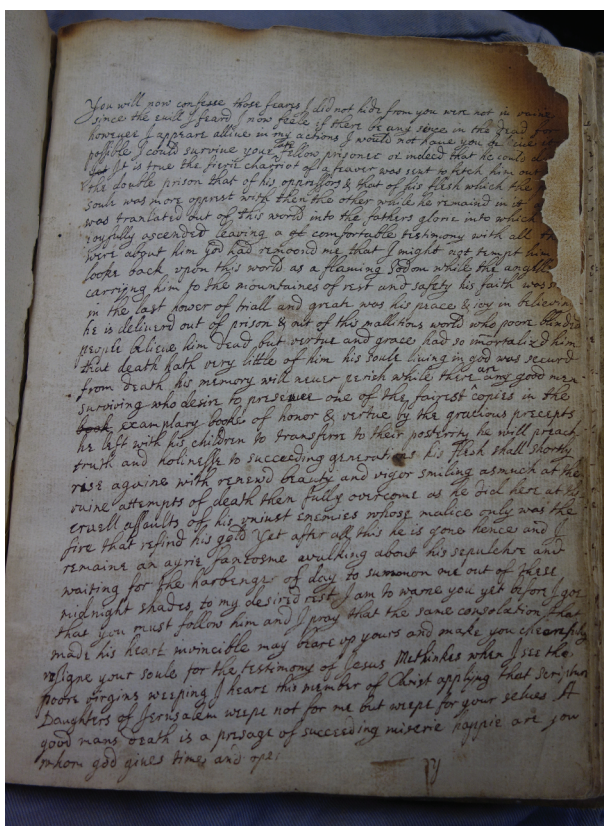 You will now confesse those feares I did not hide from you were not in vaine
since the evill I feard I now feele if there be any sence in the dead for
however I appeare allive in my actions I would not have you believe it
possible I could survive your fate fellow prisoner or indeed that he could
It is true the fierie charriot of a feaver was sent to fetch him out
the double prison that of his oppressors & that of his flesh which the
soule was more opprest with then the other while he remaind in it
was tranlated out of this world into the fathers glorie into which
ioyfully ascended leaving a gt comfortable testimony with all
were about him god had remoovd me that I might not tempt him
looke back upon this world as a flaming Sodom while the angells
carriyng him to the mountaines of rest and safety his faith was
in the last hower of triall and greate was his peace & ioy in believing
he is deliverd out of prison & out of the mallitious world who poore blinded
people believe him dead but vertue and grace had so imortalizd him
that death hath very little of him his soule living in god was securd
from death his memory will never perish while there are any good men
surviving who desire to preserve one of the fairest copies in the
book examplary booke of honor & vertue by the gracious precepts
he left with his children to transferre to their posterity he will preach
truth and holinesse to succeeding generations his flesh shall shortly
rise againe with renewd beauty and vigor smiling asmuch at the
vaine attempts of death then fully overcome as he did here at the
cruell assaults of his uniust enemies whose malice only was the
fire that refind his gold Yet after all this he is gone hence and I
remaine an ayrie fantosme walking about his sepulchre and
waiting for the harbenger of day to summon me out of these
midnight shades to my desired rest I am to warne you yet before I goe
that you must follow him and I pray that the same consolation that
made his heart invincible may beare up yours and make you cheerefully
resigne your soule for the testimony of Iesus Methinkes when I see the
poore virgins weeping I heare this member of Christ applying that scripture
Daughters of Jerusalem weepe not for me but weepe for your selves A
good mans death is a presage of succeeding miserie happie are you
whom god gives time and